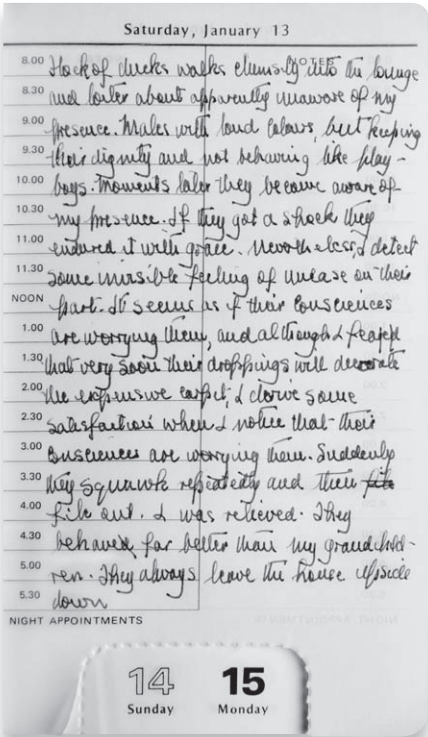 Saturday, January 13
NOTES
8.00 Flock of ducks walks clumsily into the lounge
8.30 and loiter about apparently unaware of my
9.00 presence. Males with loud colours, but keeping
9.30 their dignity and not behaving like play-
10.00 boys. Moments later they become aware of
10.30 my presence. If they got a shock they
11.00 endured it with grace. Nevertheless, I detect
11.30 some invisible feeling of unease on their
NOON part. It seems as if their consciences
1.00 are worrying them, and although I fear
1.30 that very soon their droppings will decorate
2.00 the expensive carpet, I derive some
2.30 satisfaction when I notice that their
3.00 consciences are worrying them. Suddenly
3.30 they squawk repeatedly and then file
4.00 file out. I was relieved. They
4.30 behave far better than my grandchild-
5.00 ren. They always leave the house upside
5.30 down
NIGHT APPOINTMENTS
14 15
Sunday Monday